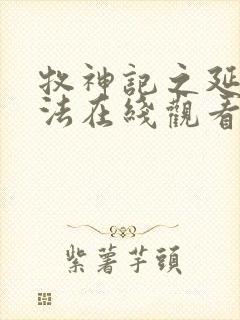 牧神記之延
法在綫觀看
紫薯芋頭